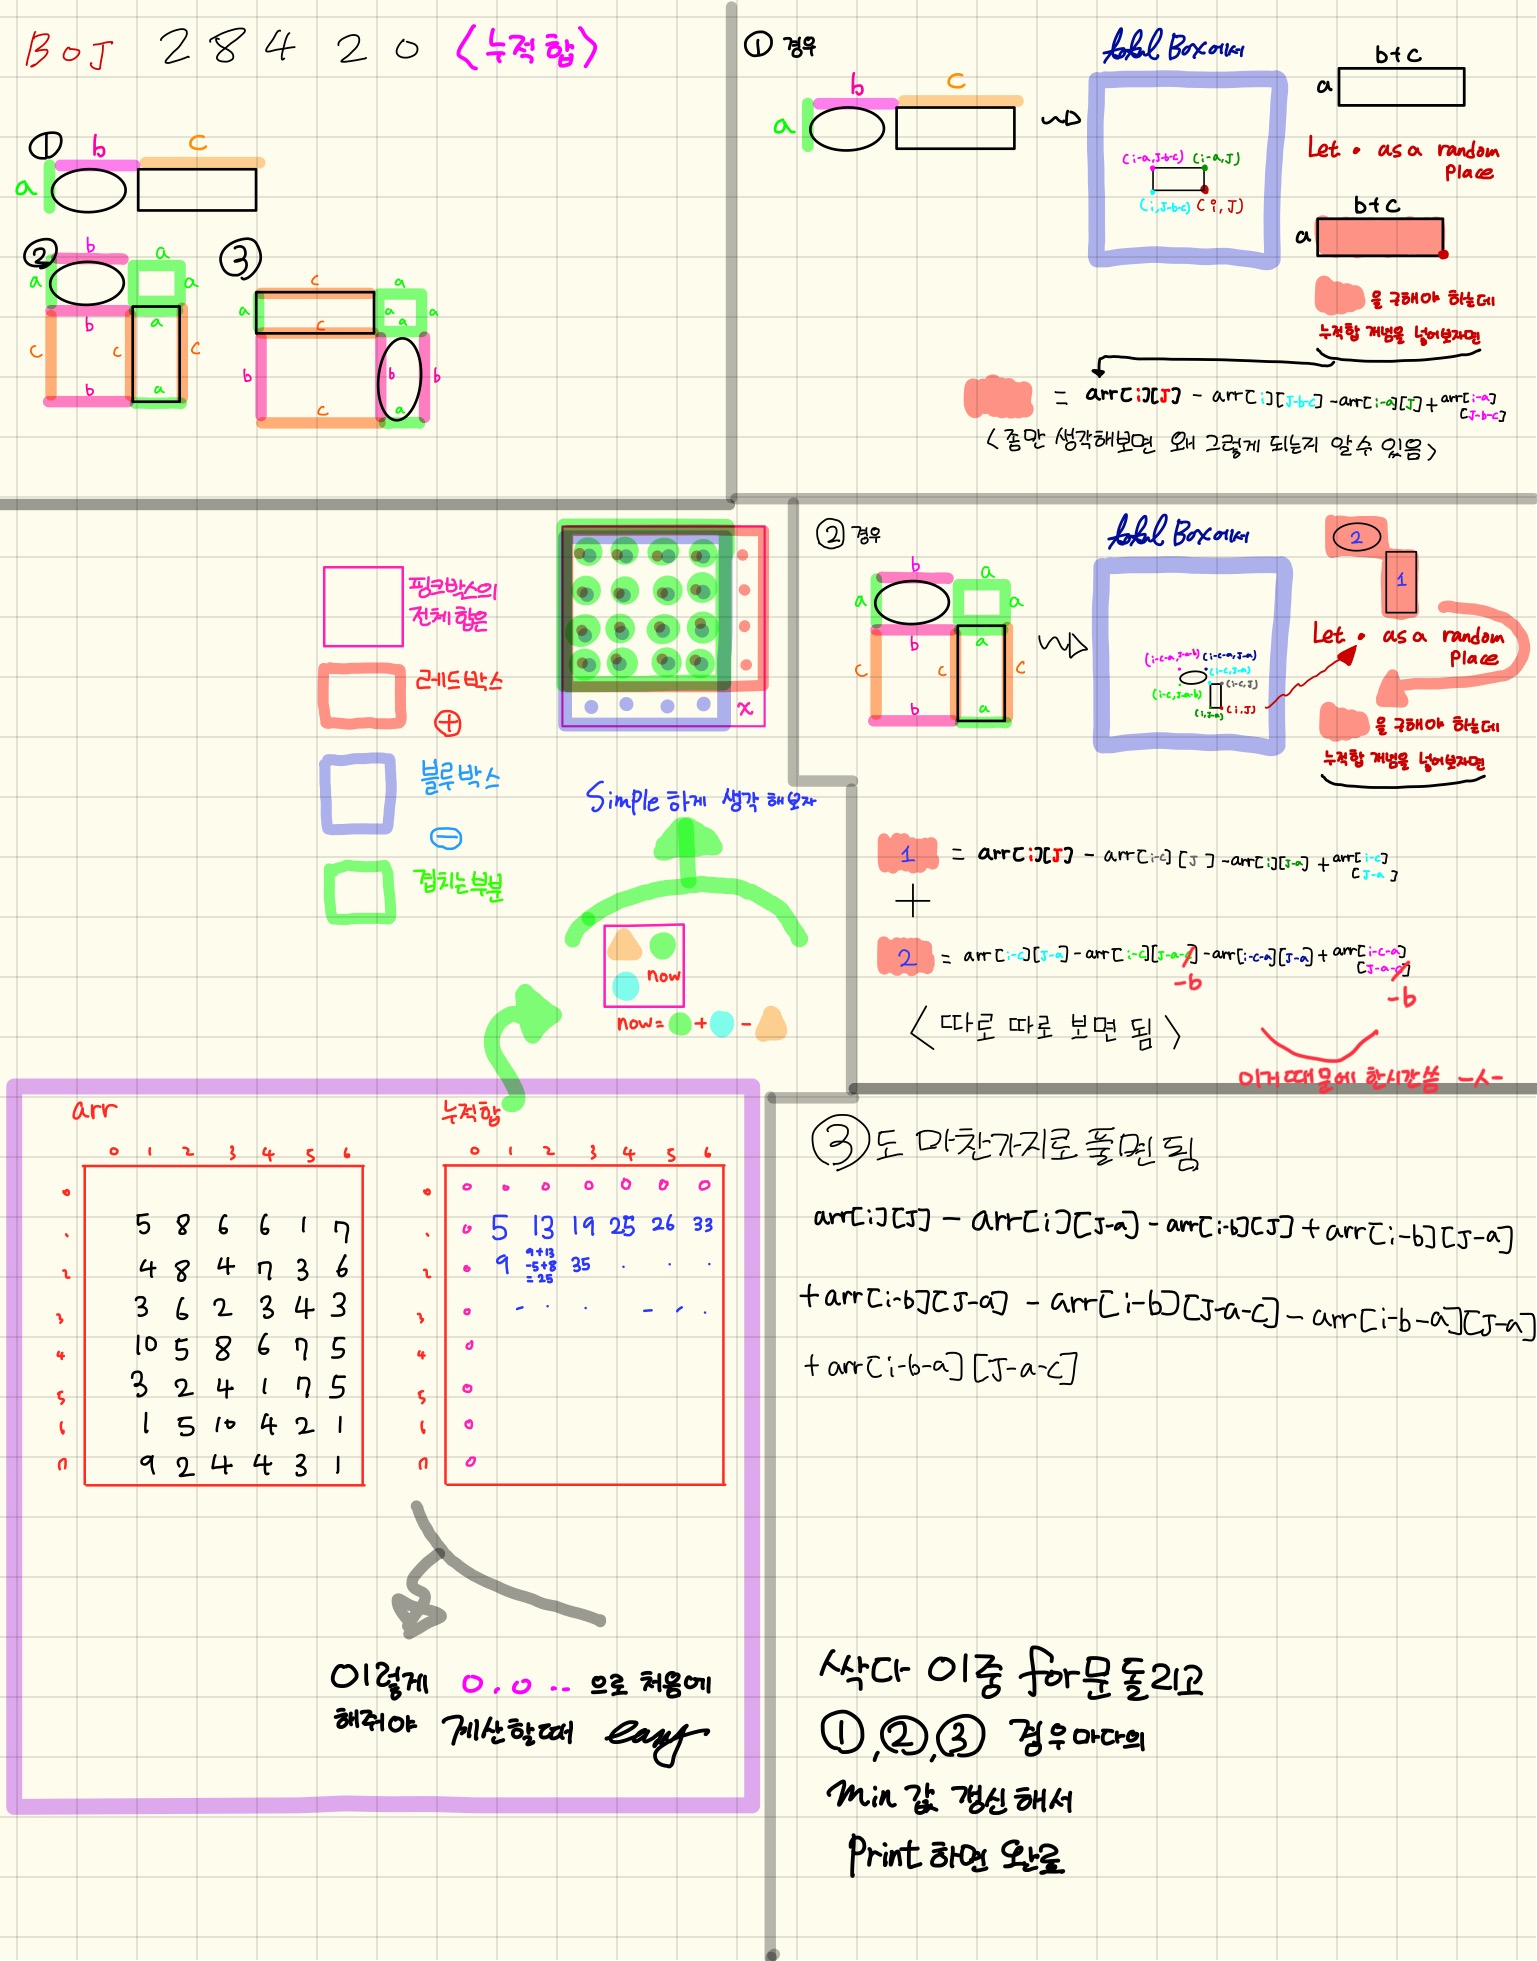 BOJ 28420 <누적합>
①
b
c
a
②
b
a
a
a
b
a
c
c
c
b
a
③
c
a
a
a
a
c
a
b
b
b
c
a
① 경우
b
c
a
total Box에서
b+c
a
(i-a,J-b-c) (i-a,J)
(i,J-b-c) (i,J)
Let • as a random
Place
b+c
a
을 구해야 하는데
누적합 개념을 넣어보자면
= arr[i][J] - arr[i][J-b-c] -arr[i-a][J] + arr[i-a]
[J-b-c]
<좀만 생각해보면 왜 그렇게 되는지 알수 있음>
핑크박스의
전체합은
레드박스
+
블루박스
-
겹치는부분
x
Simple 하게 생각 해보자
now
now= + -
② 경우
b
a
a
a
b
a
c
c
c
b
a
total Box에서
2
1
(i-c-a,J-a-b) (i-c-a,J-a)
(i-c,J-a)
(i-c,J-a-b)
(i-c,J)
(i,J-a)
(i,J)
Let • as a random
Place
을 구해야 하는데
누적합 개념을 넣어보자면
1 = arr[i][J] - arr[i-c][J] -arr[i][J-a] + arr[i-c]
[J-a]
+
2 = arr[i-c][J-a] - arr[i-c][J-a-c] -arr[i-c-a][J-a] + arr[i-c-a]
[J-a-c]
-b
-b
<따로 따로 보면 됨>
이거때문에 한시간씀 -ㅅ-
arr
0 1 2 3 4 5 6
0
1 5 8 6 6 1 7
2 4 8 4 7 3 6
3 3 6 2 3 4 3
4 10 5 8 6 7 5
5 3 2 4 1 7 5
6 1 5 10 4 2 1
7 9 2 4 4 3 1
누적합
0 1 2 3 4 5 6
0 0 0 0 0 0 0 0
1 0 5 13 19 25 26 33
2 0 9 9+13 35 . . .
-5+8
= 25
3 0 - . . - - .
4 0
5 0
6 0
7 0
이렇게 0.0.. 으로 처음에
해줘야 계산할때 easy
③도 마찬가지로 풀면 됨
arr[i][J] - arr[i][J-a] - arr[i-b][J] + arr[i-b][J-a]
+ arr[i-b][J-a] - arr[i-b][J-a-c] - arr[i-b-a][J-a]
+ arr[i-b-a][J-a-c]
싹다 이중 for문 돌리고
①,②,③ 경우마다의
Min 값 갱신해서
Print 하면 완료